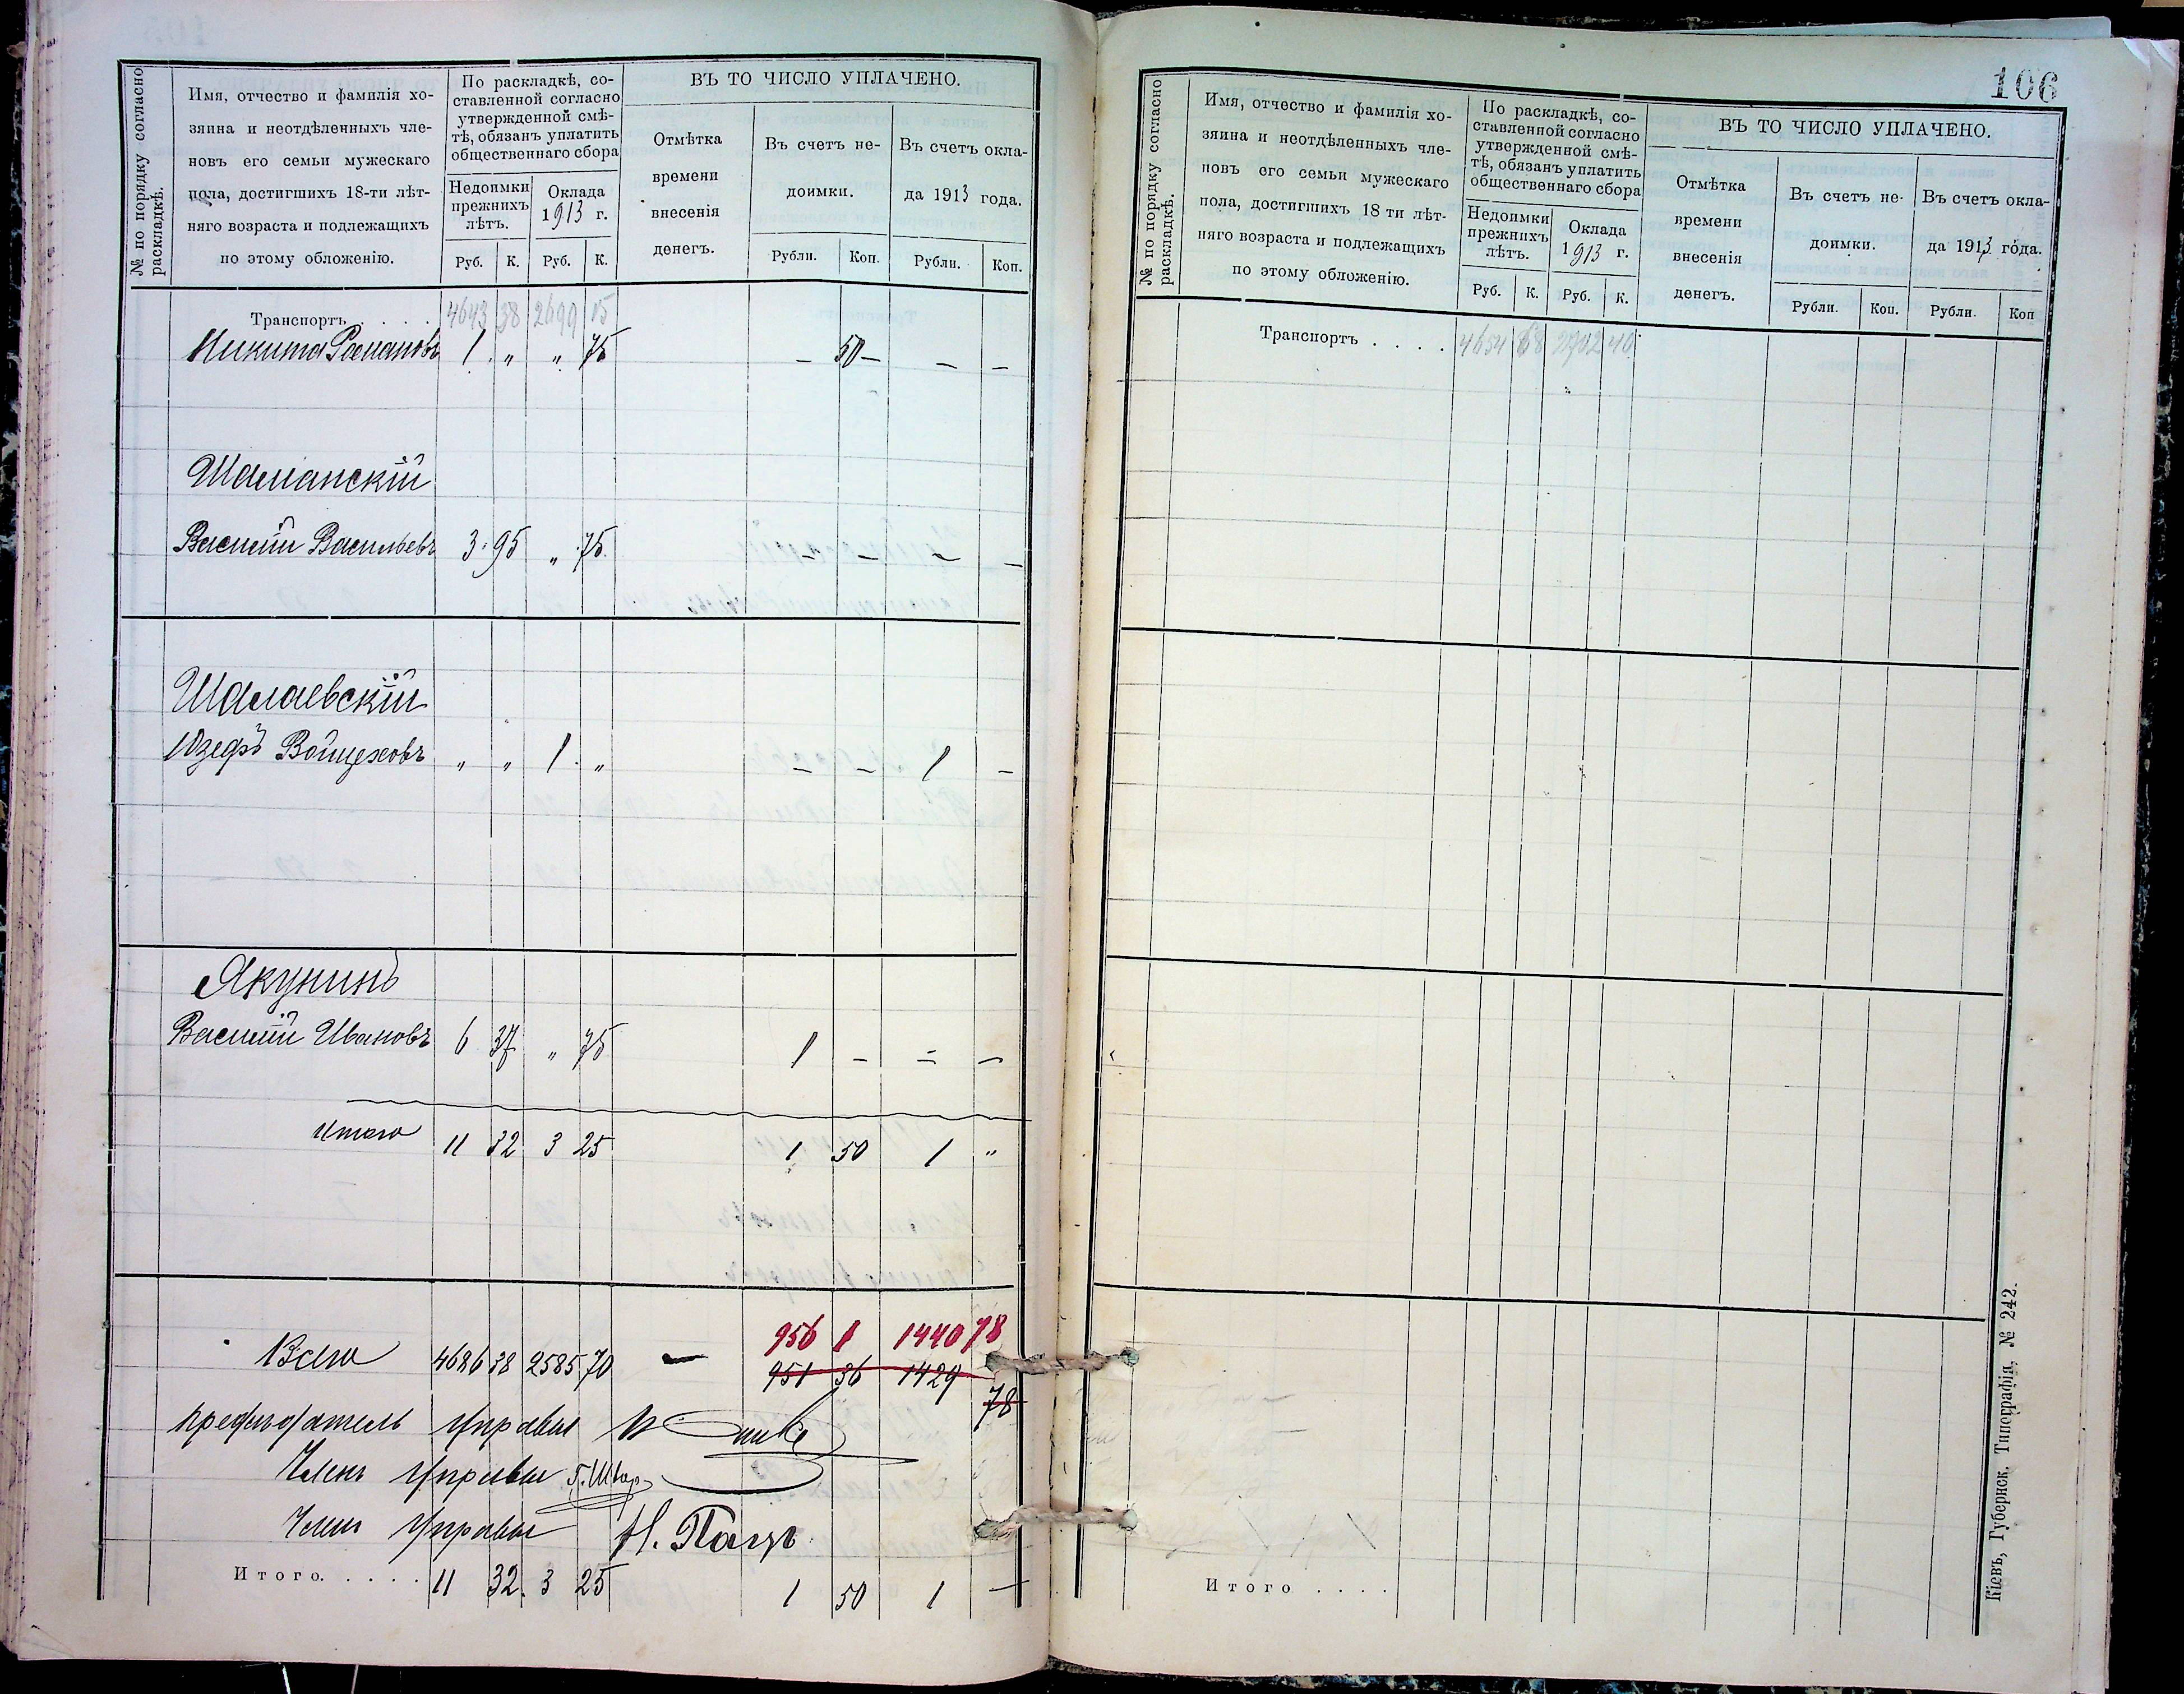 № по порядку согласно раскладкѣ.
Имя, отчество и фамилія хо-
зяина и неотдѣленныхъ чле-
новъ его семьи мужескаго
пола, достигшихъ 18-ти лѣт-
няго возраста и подлежащихъ
по этому обложенію.
По раскладкѣ, со-
ставленной согласно
утвержденной смѣ-
тѣ, обязанъ уплатить
общественнаго сбора
Недоимки
прежнихъ
лѣтъ.
Оклада
1913 г.
Руб. К. Руб. К.
ВЪ ТО ЧИСЛО УПЛАЧЕНО.
Отмѣтка
времени
внесенія
денегъ.
Въ счетъ не-
доимки.
Въ счетъ окла-
да 1913 года.
Рубли. Коп. Рубли. Коп.
Транспортъ . . . . 4643 38 2699 15
Никита Романовъ 1 „ „ 75 — 50 — — —
Шаманскій
Василій Васильевъ 3 95 „ 75 — — — —
Шалаевскій
Юзефъ Войцеховъ „ „ 1 „ — — 1 —
Якунинъ
Василій Ивановъ 6 37 „ 75 1 — — —
Итого 11 32 3 25 1 50 1 „
956 1 1440 78
Всего 4686 38 2585 70 — 951 36 1429 78
Предсѣдатель Управы
Членъ Управы
Членъ Управы Н. Пацъ
Итого. . . . . 11 32 3 25 1 50 1 —
106
№ по порядку согласно раскладкѣ.
Имя, отчество и фамилія хо-
зяина и неотдѣленныхъ чле-
новъ его семьи мужескаго
пола, достигшихъ 18 ти лѣт-
няго возраста и подлежащихъ
по этому обложенію.
По раскладкѣ, со-
ставленной согласно
утвержденной смѣ-
тѣ, обязанъ уплатить
общественнаго сбора
Недоимки
прежнихъ
лѣтъ.
Оклада
1913 г.
Руб. К. Руб. К.
ВЪ ТО ЧИСЛО УПЛАЧЕНО.
Отмѣтка
времени
внесенія
денегъ.
Въ счетъ не-
доимки.
Въ счетъ окла-
да 1913 года.
Рубли. Коп. Рубли. Коп
Транспортъ . . . . 4654 68 2702 40
Итого . . . .
Кіевъ, Губернск. Типографія, № 242.